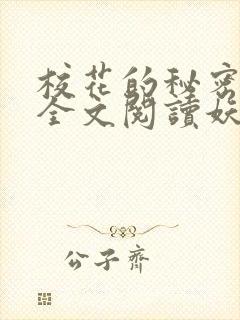 校花的秘密
全文閱讀妖
公子齊